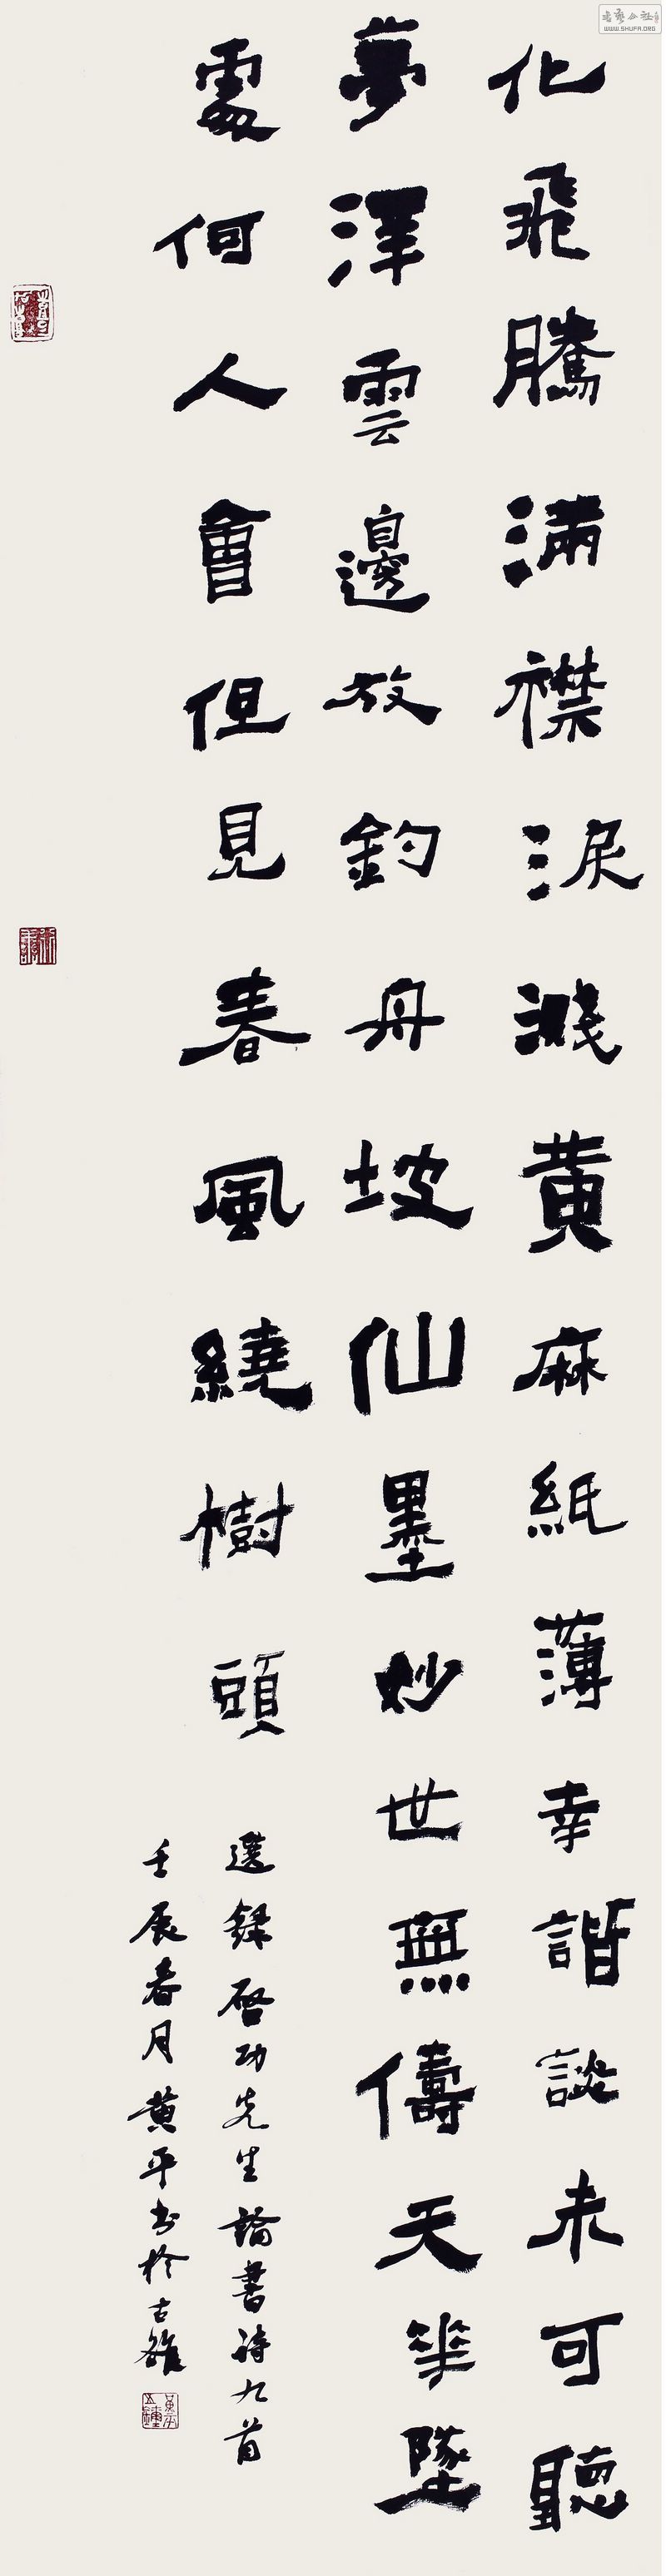 化飛騰滿襟淚濺黃麻紙薄幸諧談未可聽
夢澤雲邊放釣舟坡仙墨妙世無儔天華墜
處何人會但見春風繞樹頭
選錄啓功先生論書詩九首
壬辰春月黃平書於古雒
WWW.SHUFA.ORG